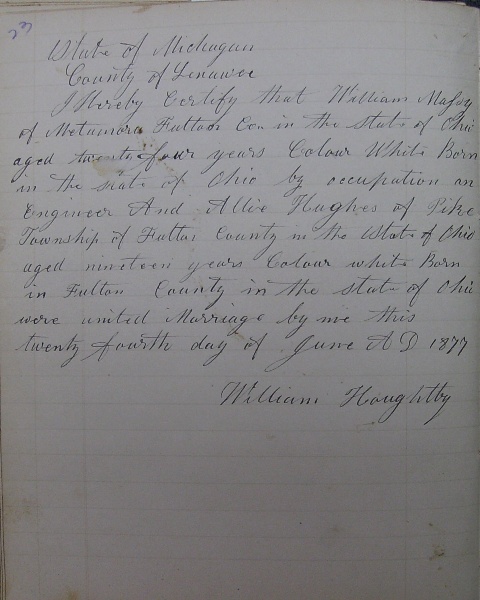 23
State of Michagan
County of Lenawee
I Hereby Certify that William Massy
of Metamora Fulton Co in the State of Ohio
aged twenty four years Colour White Born
in the state of Ohio by occupation an
Engineer And Allie Hughes of Pike
Township of Fulton County in the State of Ohio
aged nineteen years Colour white Born
in Fulton County in the state of Ohio
were united Marriage by me this
twenty fourth day of June A D 1877
William Houghtby